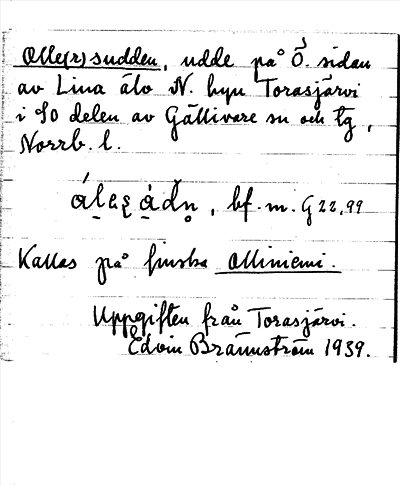 Olle(r)sudden, udde på Ö. sidan
av Lina älv N. byn Torasjärvi
i SO delen av Gällivare sn och tg,
Norrb. l.
bf. m. G 22,99
Kallas på finska Olliniemi.
Uppgiften från Torasjärvi.
Edvin Brännström 1939.